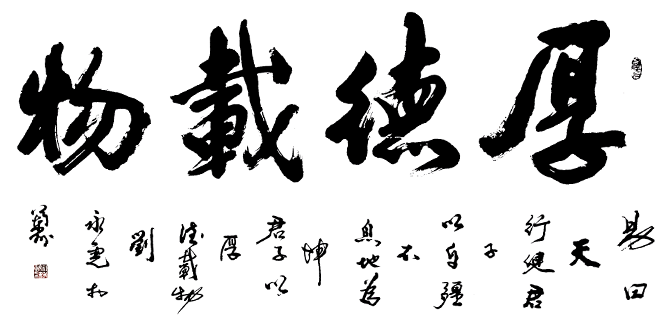 厚德載物
易曰
天
行健君
子
以自強
不
息地為
坤
君子以
厚
德載物
劉
永